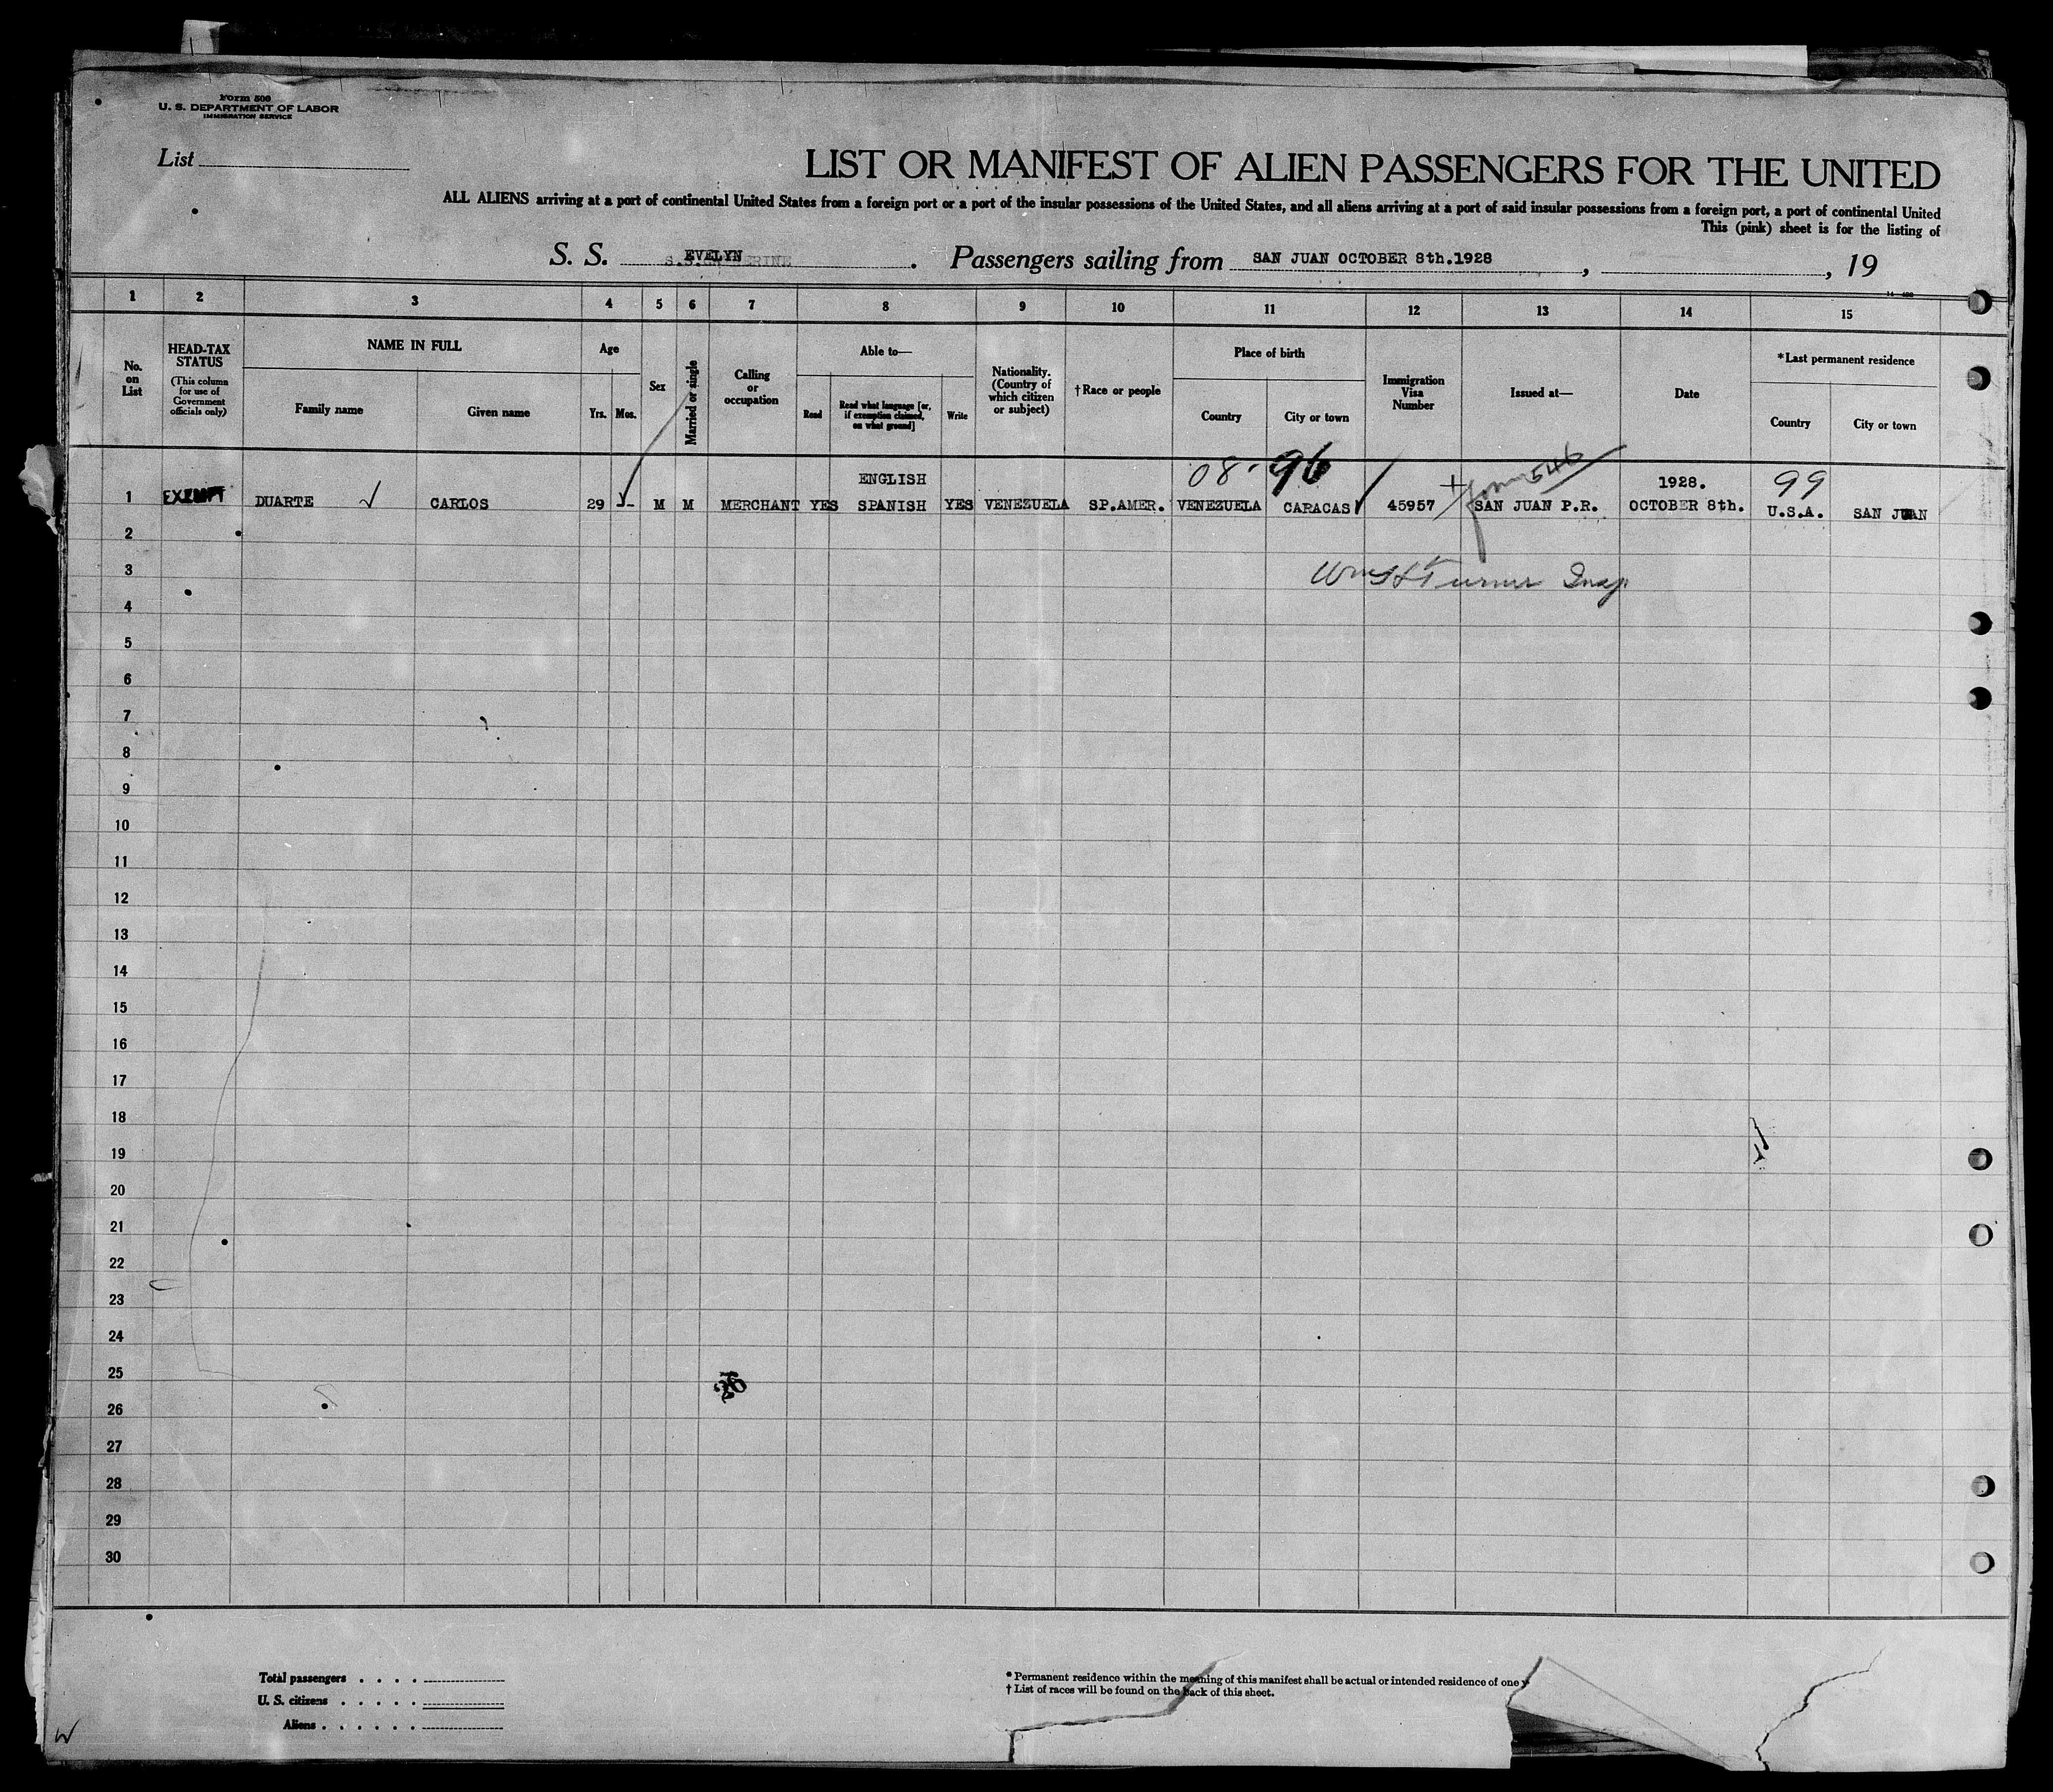 Form 500
U. S. DEPARTMENT OF LABOR
IMMIGRATION SERVICE
List
LIST OR MANIFEST OF ALIEN PASSENGERS FOR THE UNITED
ALL ALIENS arriving at a port of continental United States from a foreign port or a port of the insular possessions of the United States, and all aliens arriving at a port of said insular possessions from a foreign port, a port of continental United
This (pink) sheet is for the listing of
S. S. EVELYN. Passengers sailing from SAN JUAN OCTOBER 8th.1928, , 19
1 2 3 4 5 6 7 8 9 10 11 12 13 14 15
No. on List
HEAD-TAX STATUS
(This column for use of Government officials only)
NAME IN FULL
Family name
Given name
Age
Yrs. Mos.
Sex
Married or single
Calling or occupation
Able to—
Read
Read what language [or, if exemption claimed, on what ground]
Write
Nationality. (Country of which citizen or subject)
†Race or people
Place of birth
Country
City or town
Immigration Visa Number
Issued at—
Date
*Last permanent residence
Country
City or town
08- 96 99
ENGLISH 1928.
1 EXEMPT DUARTE √ CARLOS 29 -- M M MERCHANT YES SPANISH YES VENEZUELA SP.AMER. VENEZUELA CARACAS 45957 SAN JUAN P.R. OCTOBER 8th. U.S.A. SAN JUAN
2
3 Turner Insp
4
5
6
7
8
9
10
11
12
13
14
15
16
17
18
19
20
21
22
23
24
25
26
27
28
29
30
Total passengers . . . .
U. S. citizens . . . . .
Aliens . . . . . .
* Permanent residence within the meaning of this manifest shall be actual or intended residence of one
† List of races will be found on the back of this sheet.